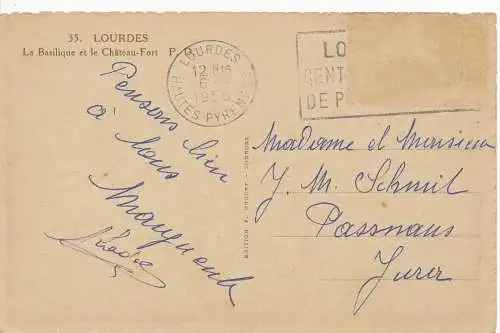 35. LOURDES
La Basilique et le Château-Fort P. D.
LOURDES
12 H15
1956
HAUTES PYRENEES
LO
CENT
DE P
Pensons bien
à vous
Marguerite
Madame et Monsieur
J. M. Schmit
Passnaus
Jurer
EDITION
LOURDES